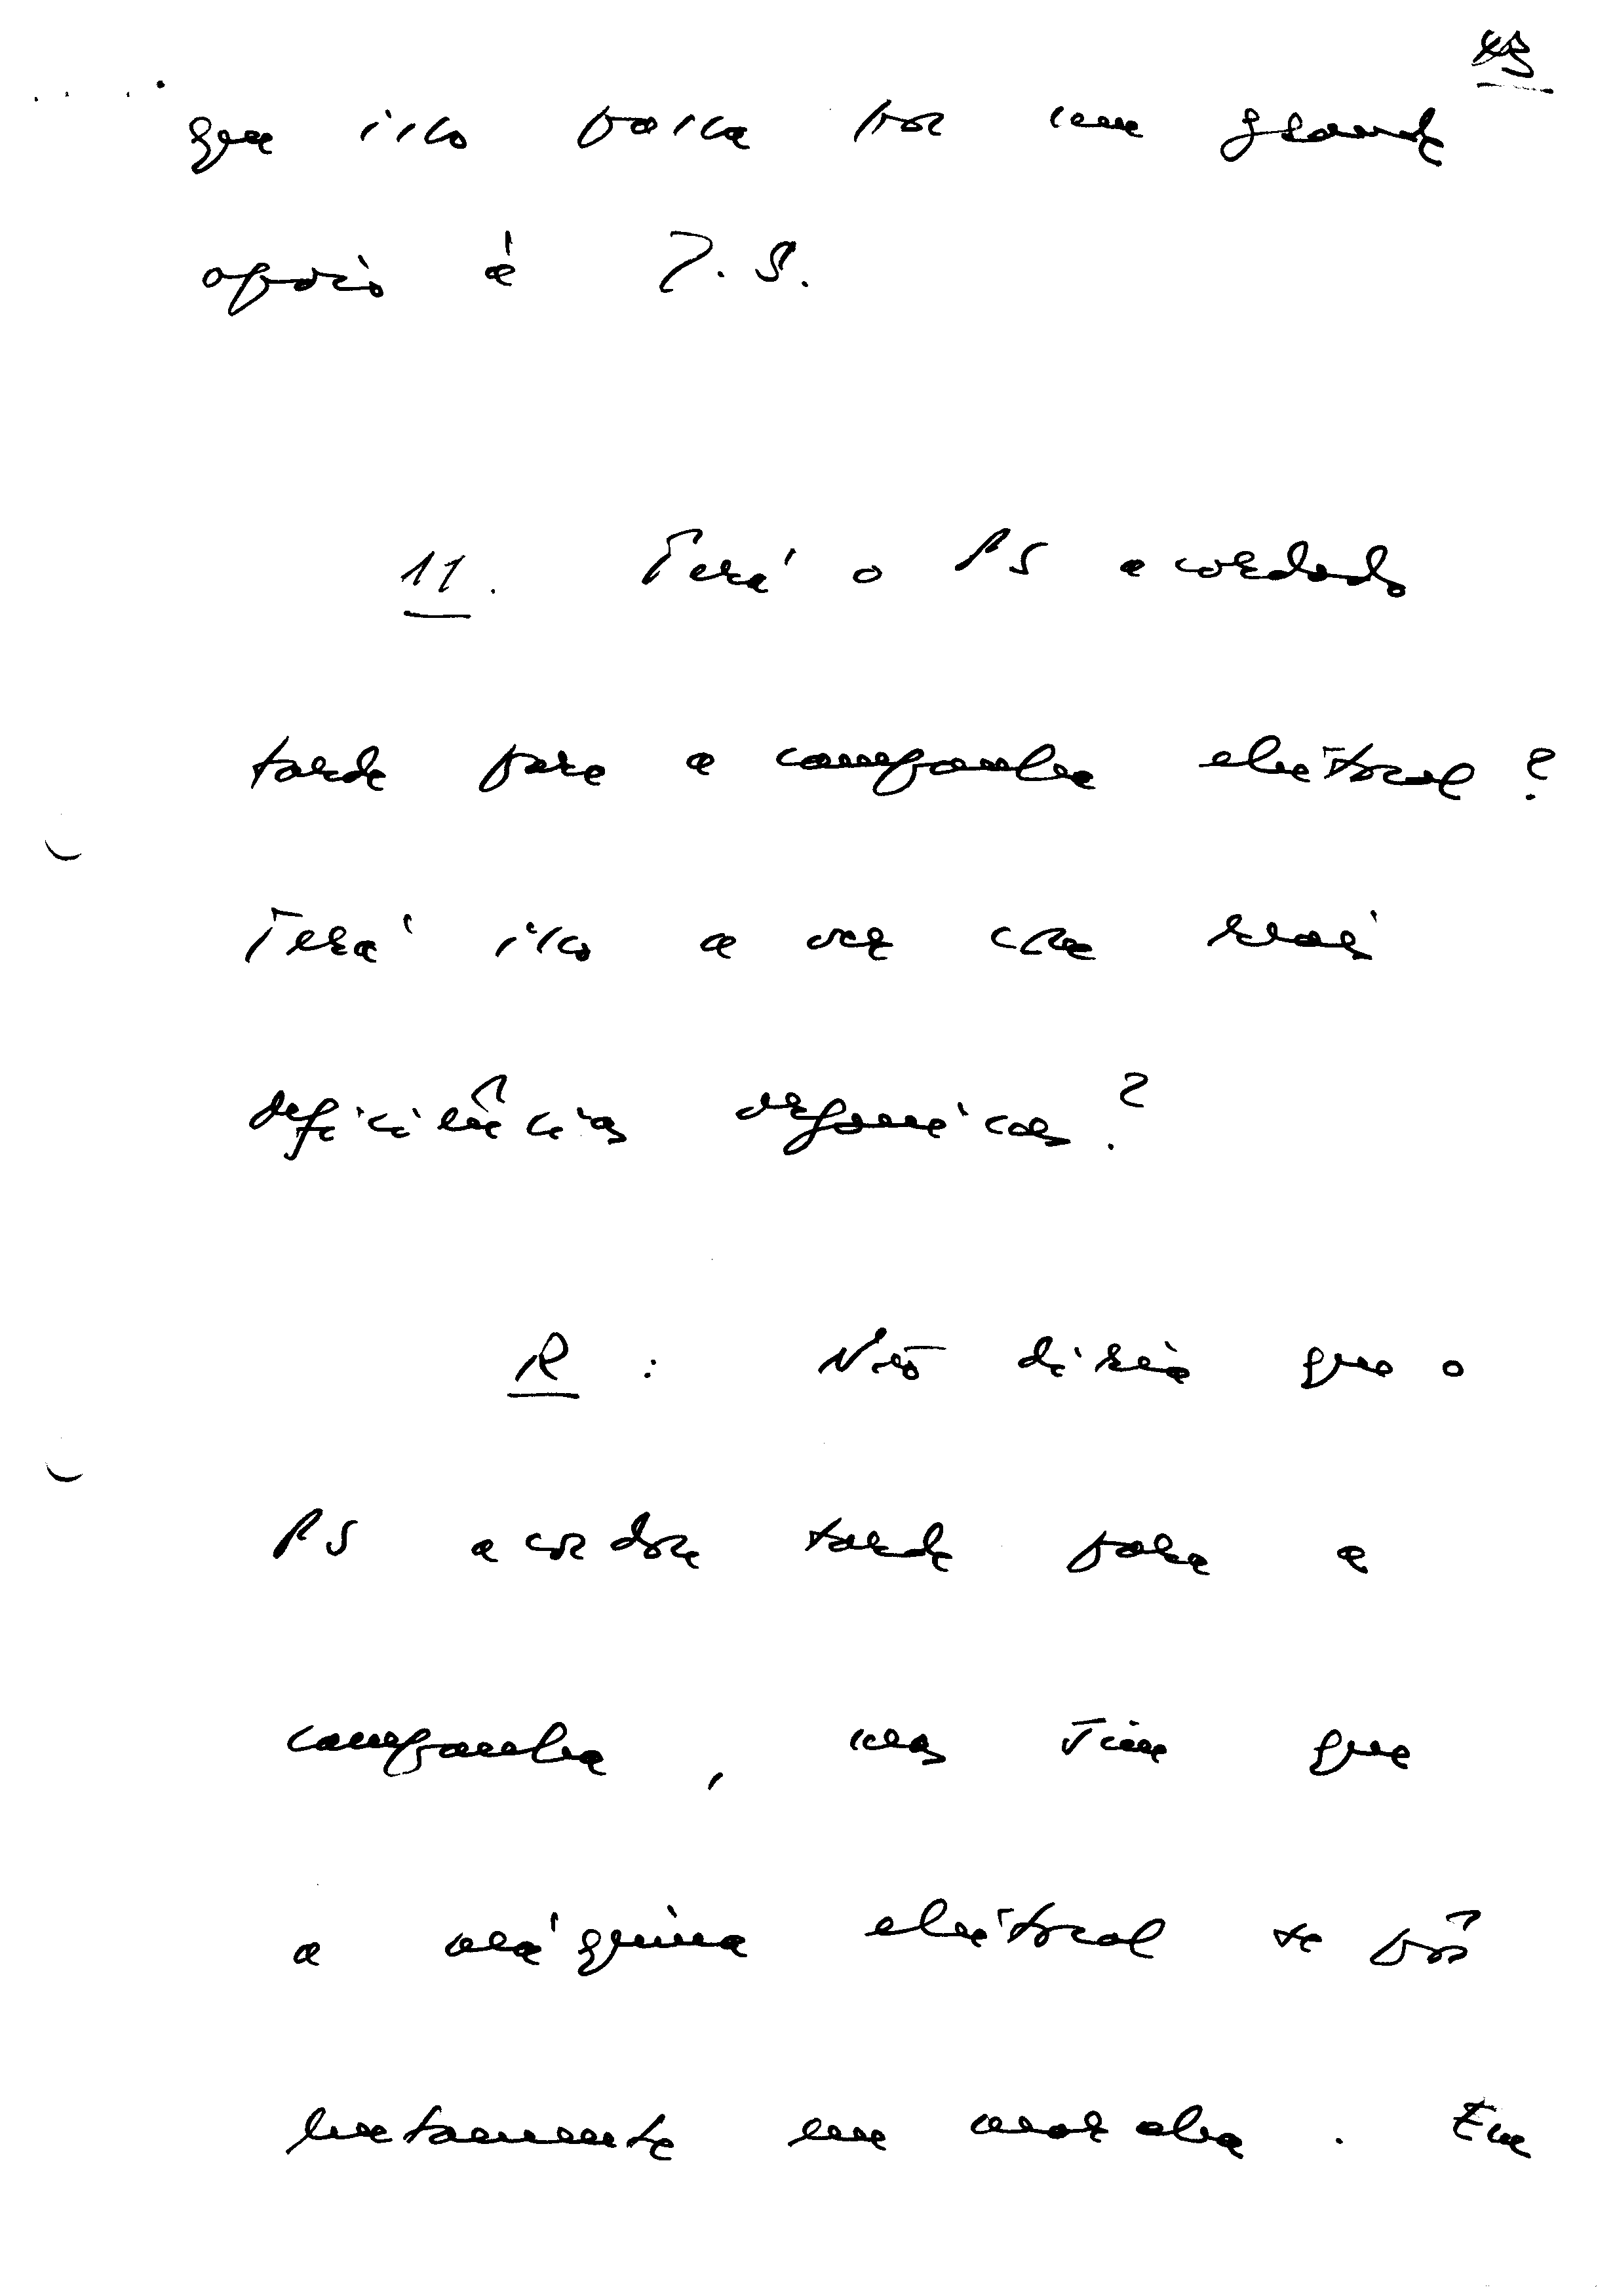 que isso possa ser um grande
apoio à J.S.
11. Terá o PS acordado
tarde para a campanha eleitoral?
Terá isso a ver com
deficiências orgânicas?
R: Não diria que o
PS acordou tarde para a
campanha, mas sim que
a máquina eleitoral se pôs
lentamente em marcha. Em